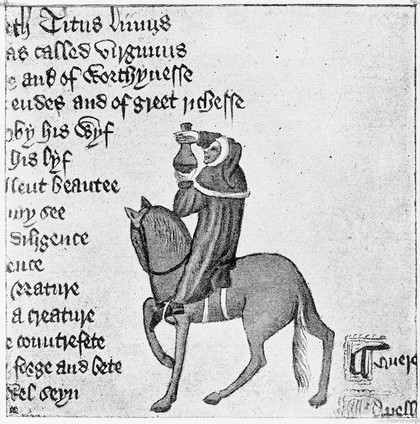 eth Titus liuius
as called virginius
e and of worthynesse
endes and of greet richesse
by his wyf
his lyf
llent beautee
may see
diligence
ence
reature
a creature
e countrefete
forge and bete
seyn